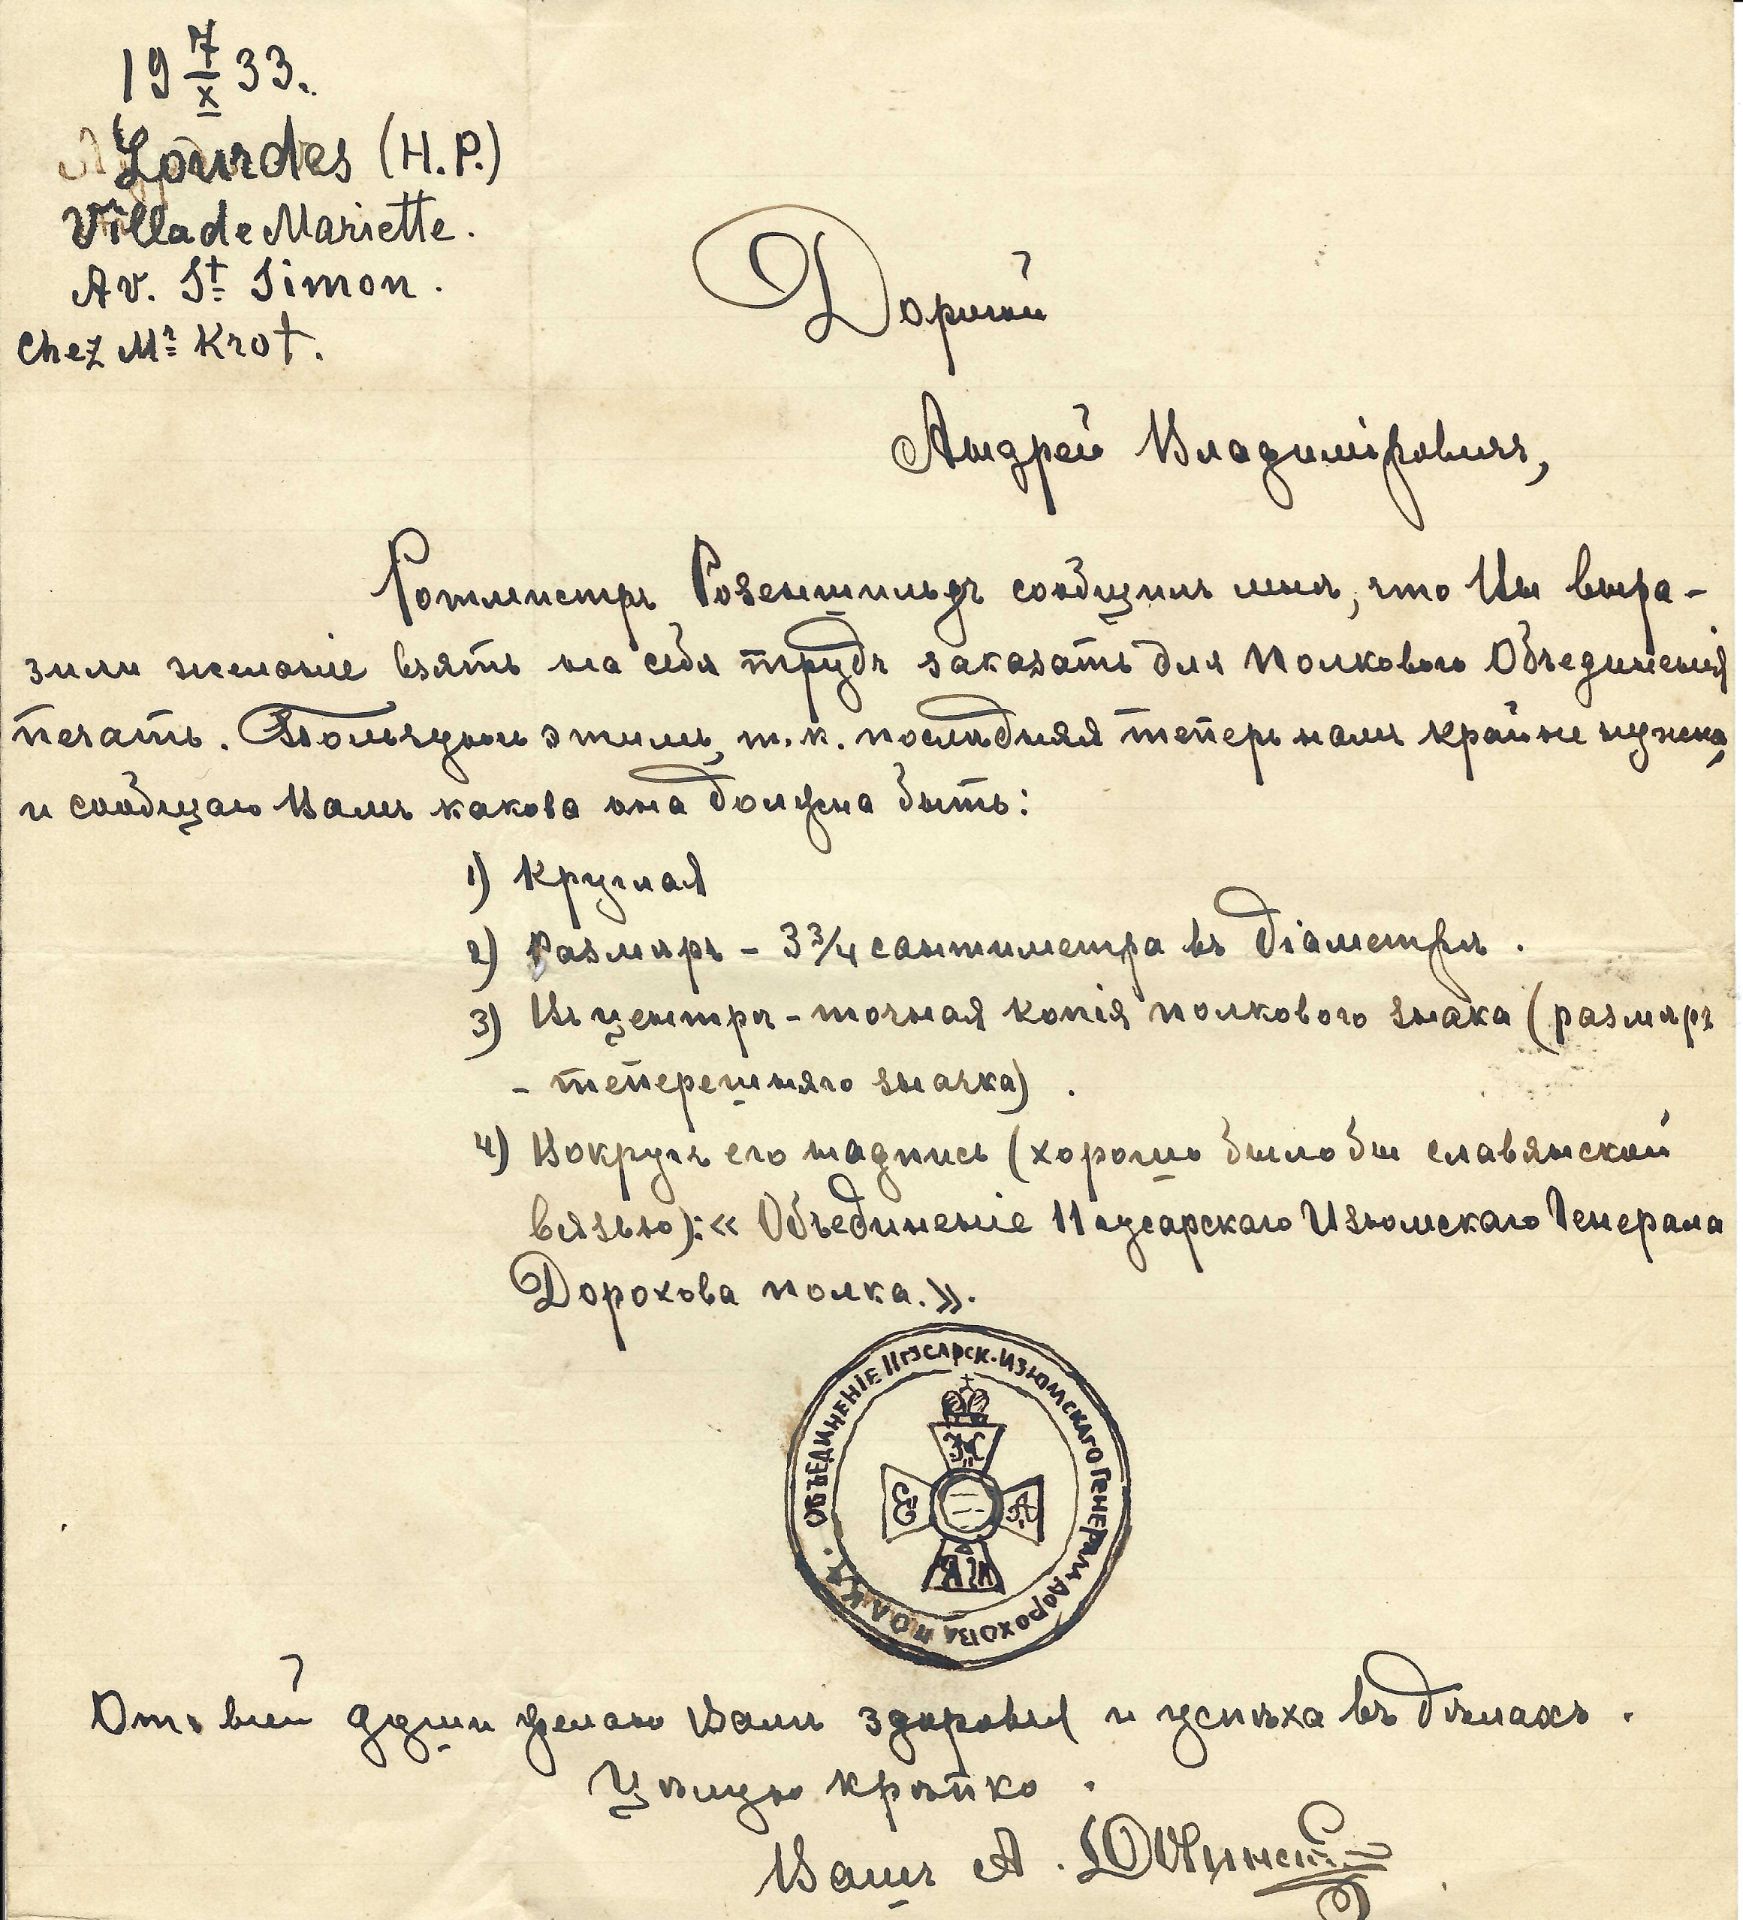 19 7/X 33.
Lourdes (H.P.)
Villa de Mariette.
Av. St Simon.
Chez Mr Krot.
Дорогой
Андрей Владимiровичъ,
Ротмистръ Розеншильдъ сообщилъ мнѣ, что Вы выра-
зили желанiе взять на себя трудъ заказать для Полкового Объединенiя
печать. Пользуюсь этимъ, т.к. послѣдняя теперь намъ крайне нужна,
и сообщаю Вамъ какова она должна быть:
1) Круглая
2) Размѣръ - 3 3/4 сантиметра въ дiаметрѣ.
3) Въ центрѣ - точная копiя полкового знака (размѣръ
- теперешняго значка).
4) Вокругъ его надпись (хорошо было бы славянской
вязью): « Объединенiе 11 гусарскаго Изюмскаго Генерала
Дорохова полка.».
ОБЪЕДИНЕНIЕ 11 ГУСАРСК. ИЗЮМСКАГО ГЕНЕРАЛА ДОРОХОВА ПОЛКА.
Отъ всей души желаю Вамъ здоровья и успѣха въ дѣлахъ.
Цѣлую крѣпко.
Вашъ А.